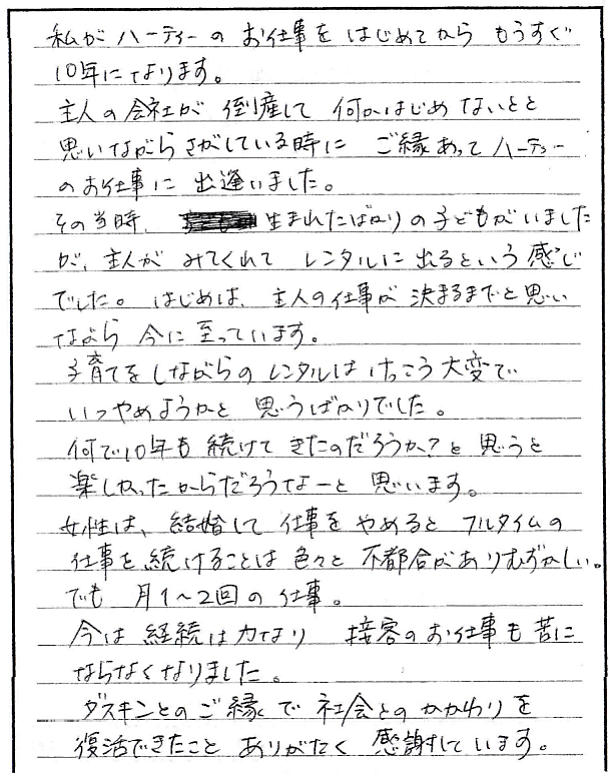 私がハーティーのお仕事をはじめてからもうすぐ
10年になります。
主人の会社が倒産して何かはじめないとと
思いながらさがしている時にご縁あってハーティー
のお仕事に出逢いました。
その当時、生まれたばかりの子どもがいました
が、主人がみてくれてレンタルに出るという感じ
でした。はじめは、主人の仕事が決まるまでと思い
ながら今に至っています。
子育てをしながらのレンタルはけっこう大変で
いつやめようかと思うばかりでした。
何で10年も続けてきたのだろうか?と思うと
楽しかったからだろうなーと思います。
女性は、結婚して仕事をやめるとフルタイムの
仕事を続けることは色々と不都合がありむずかしい。
でも月1~2回の仕事。
今は経続は力なり接客のお仕事も苦に
ならなくなりました。
ダスキンとのご縁で社会とのかかわりを
復活できたことありがたく感謝しています。